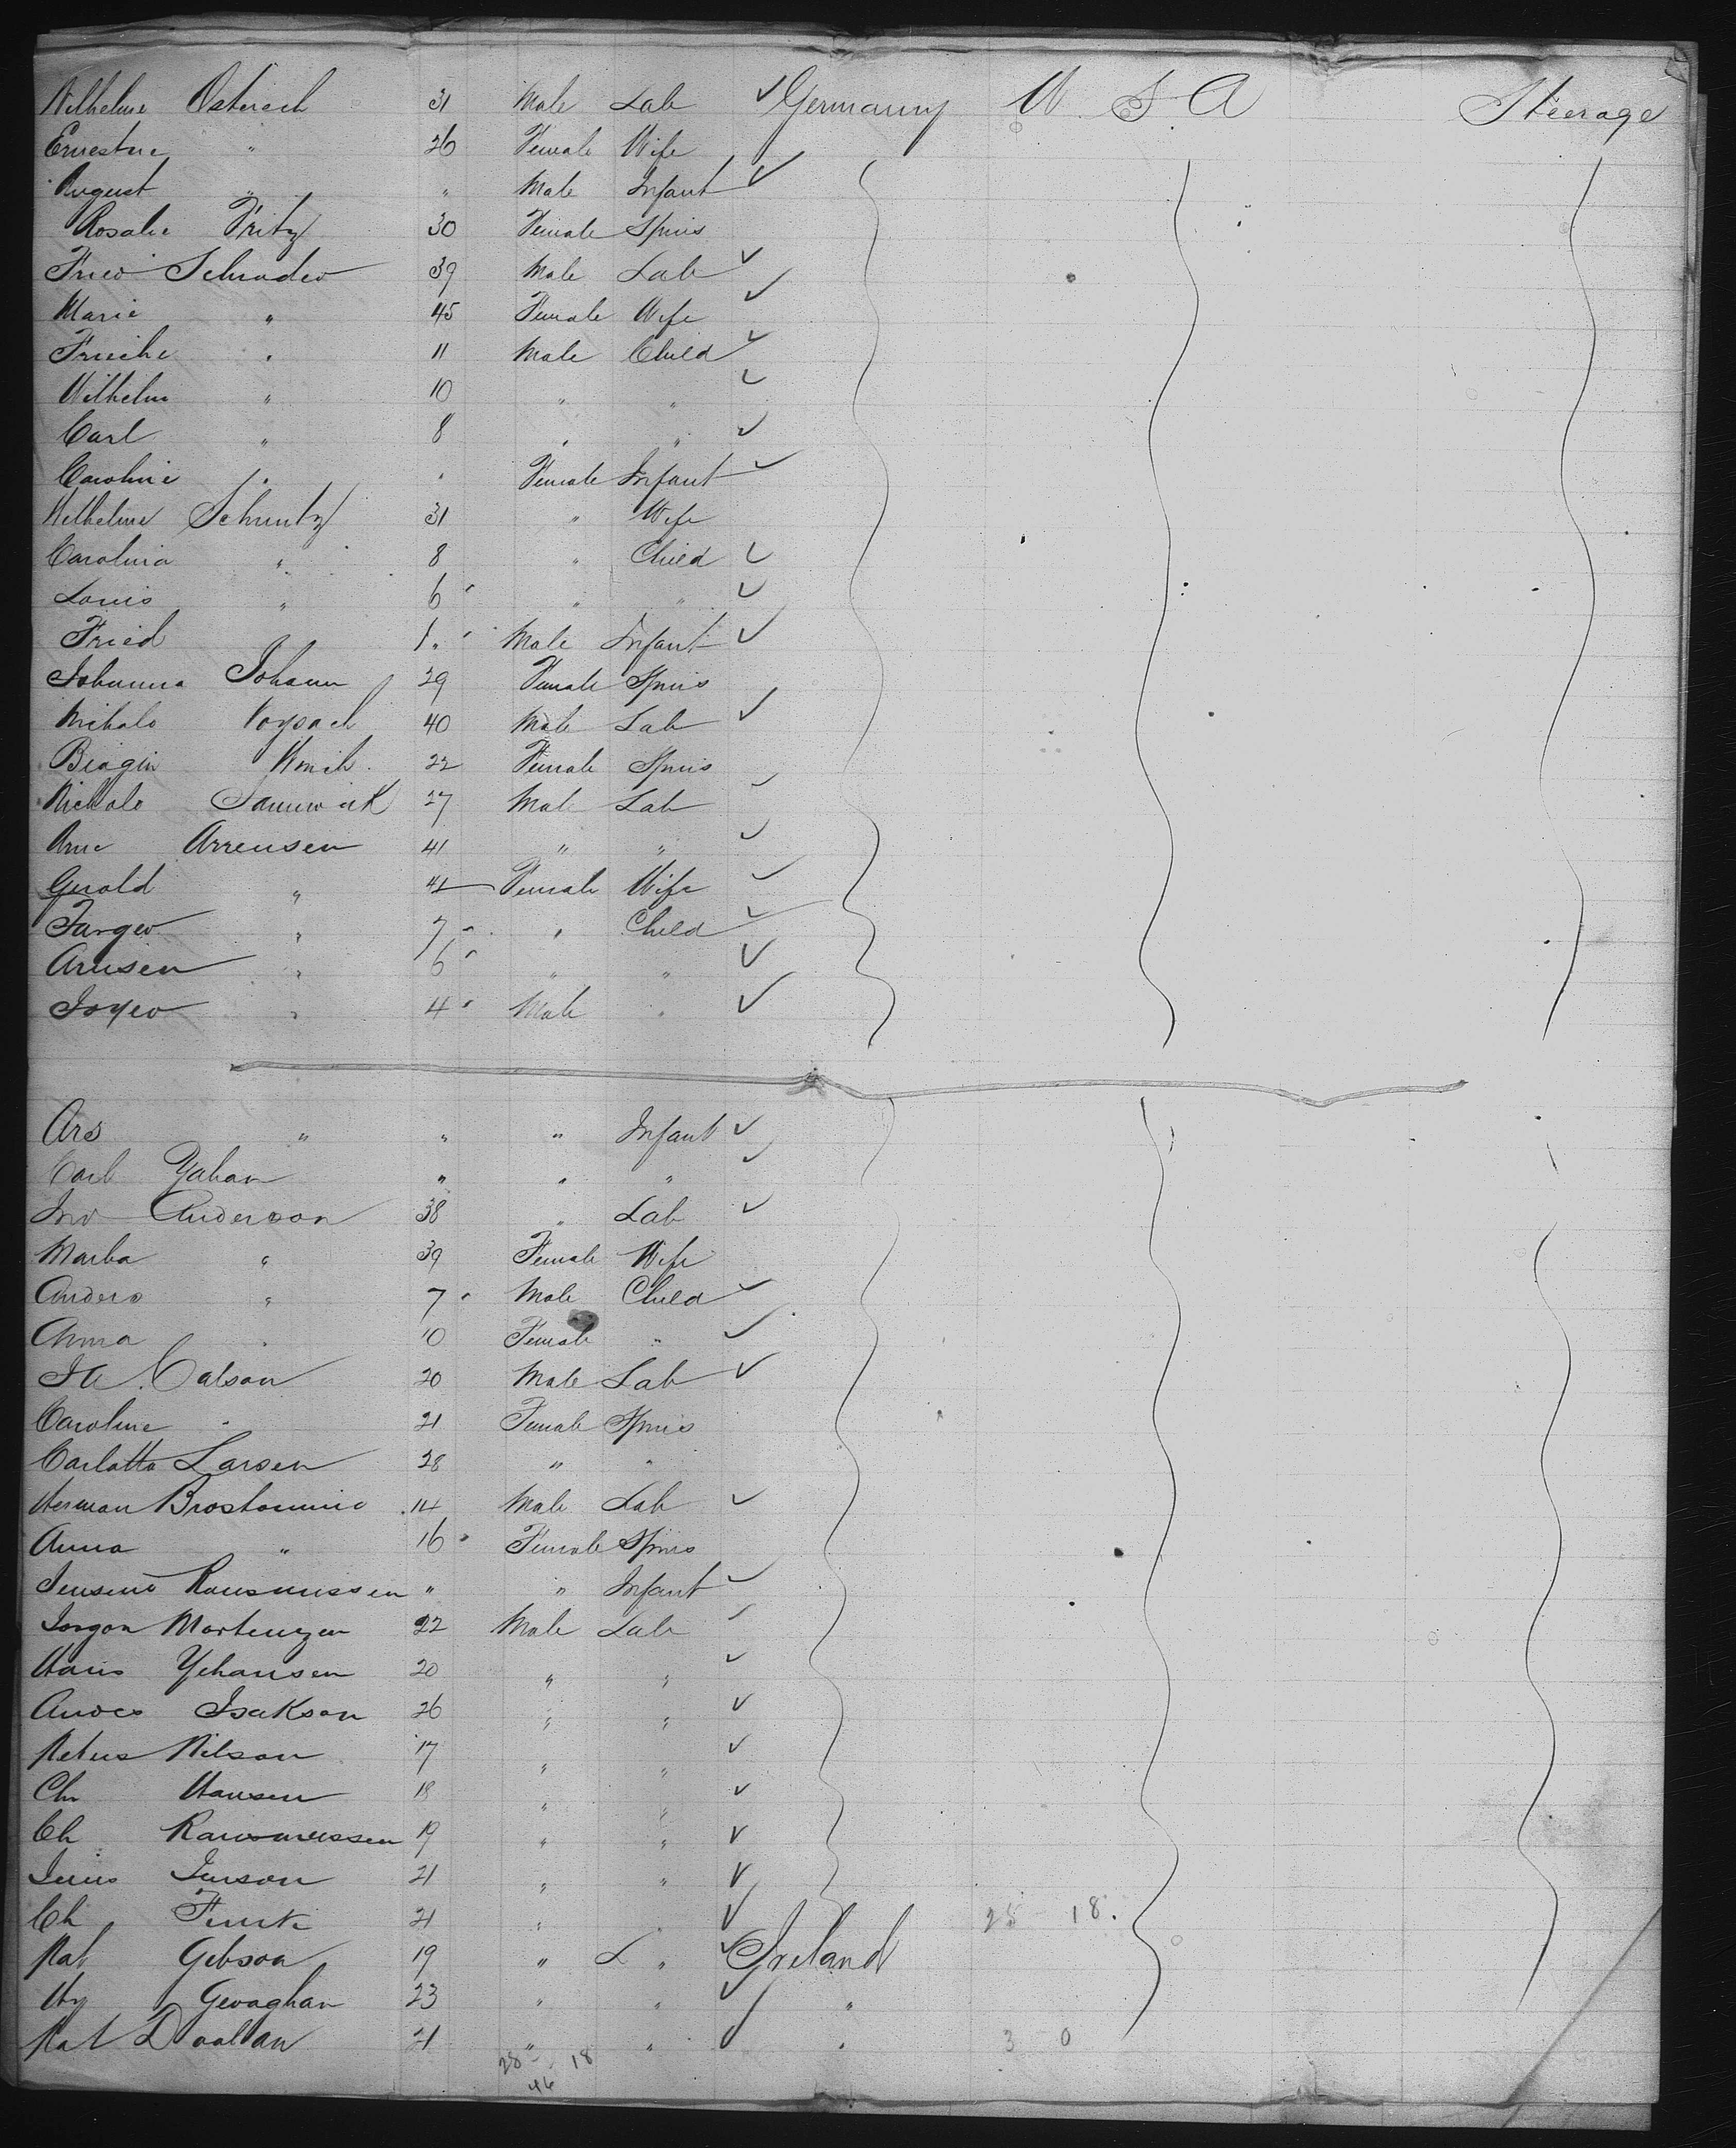 Wilhelm Osterich 31 Male Lab ✓ Germany U. S. A Steerage
Ernestine " 26 Female Wife
August " " Male Infant ✓
Rosalie Fritz 30 Female Spins
Fried Schrader 39 Male Lab ✓
Marie " 45 Female Wife ✓
11 Male Child ✓
Wilhelm " 10 " " ✓
Carl " 8 " " ✓
Caroline " " Female Infant ✓
Wilhelmine Schuntz 31 " Wife
Carolina " 8 " Child ✓
Louis " 6 " " ✓
Fried 1 " Male Infant ✓
Johanna Johann 29 Female Spins
Nikolo 40 Male Lab ✓
22 Female Spins
Nickolo 27 Male Lab ✓
Arne Arrensen 41 " " ✓
Gurold " 42 Female Wife ✓
" 7 " Child ✓
Arnsen " 6 " " ✓
" 4 Male " ✓
Ars " " " Infant ✓
Carl Yahan " " " ✓
Jno Anderson 38 " Lab ✓
Marba " 39 Female Wife
Anders " 7 Male Child ✓
Anna " 10 Female " ✓
Calson 20 Male Lab ✓
Caroline " 21 Female Spins
Carlatta Larsen 28 " "
Herman 14 Male Lab ✓
Anna " 16 Female Spins
Rausmussen " " Infant ✓
Jorgon Martenzen 22 Male Lab ✓
Hans Yehansen 20 " " ✓
Andes Isakson 26 " " ✓
Petus Nilson 17 " " ✓
Ch Hansen 18 " " ✓
Ch Rausmussen 19 " " ✓
Jenson 21 " " ✓
Ch 21 " " ✓ 28 18.
Pat Gibson 19 " L " ✓ Ireland
Hy Gevaghan 23 " " ✓ "
Pat Doolan 21 " " ✓ " 3 0
28 - 18
46